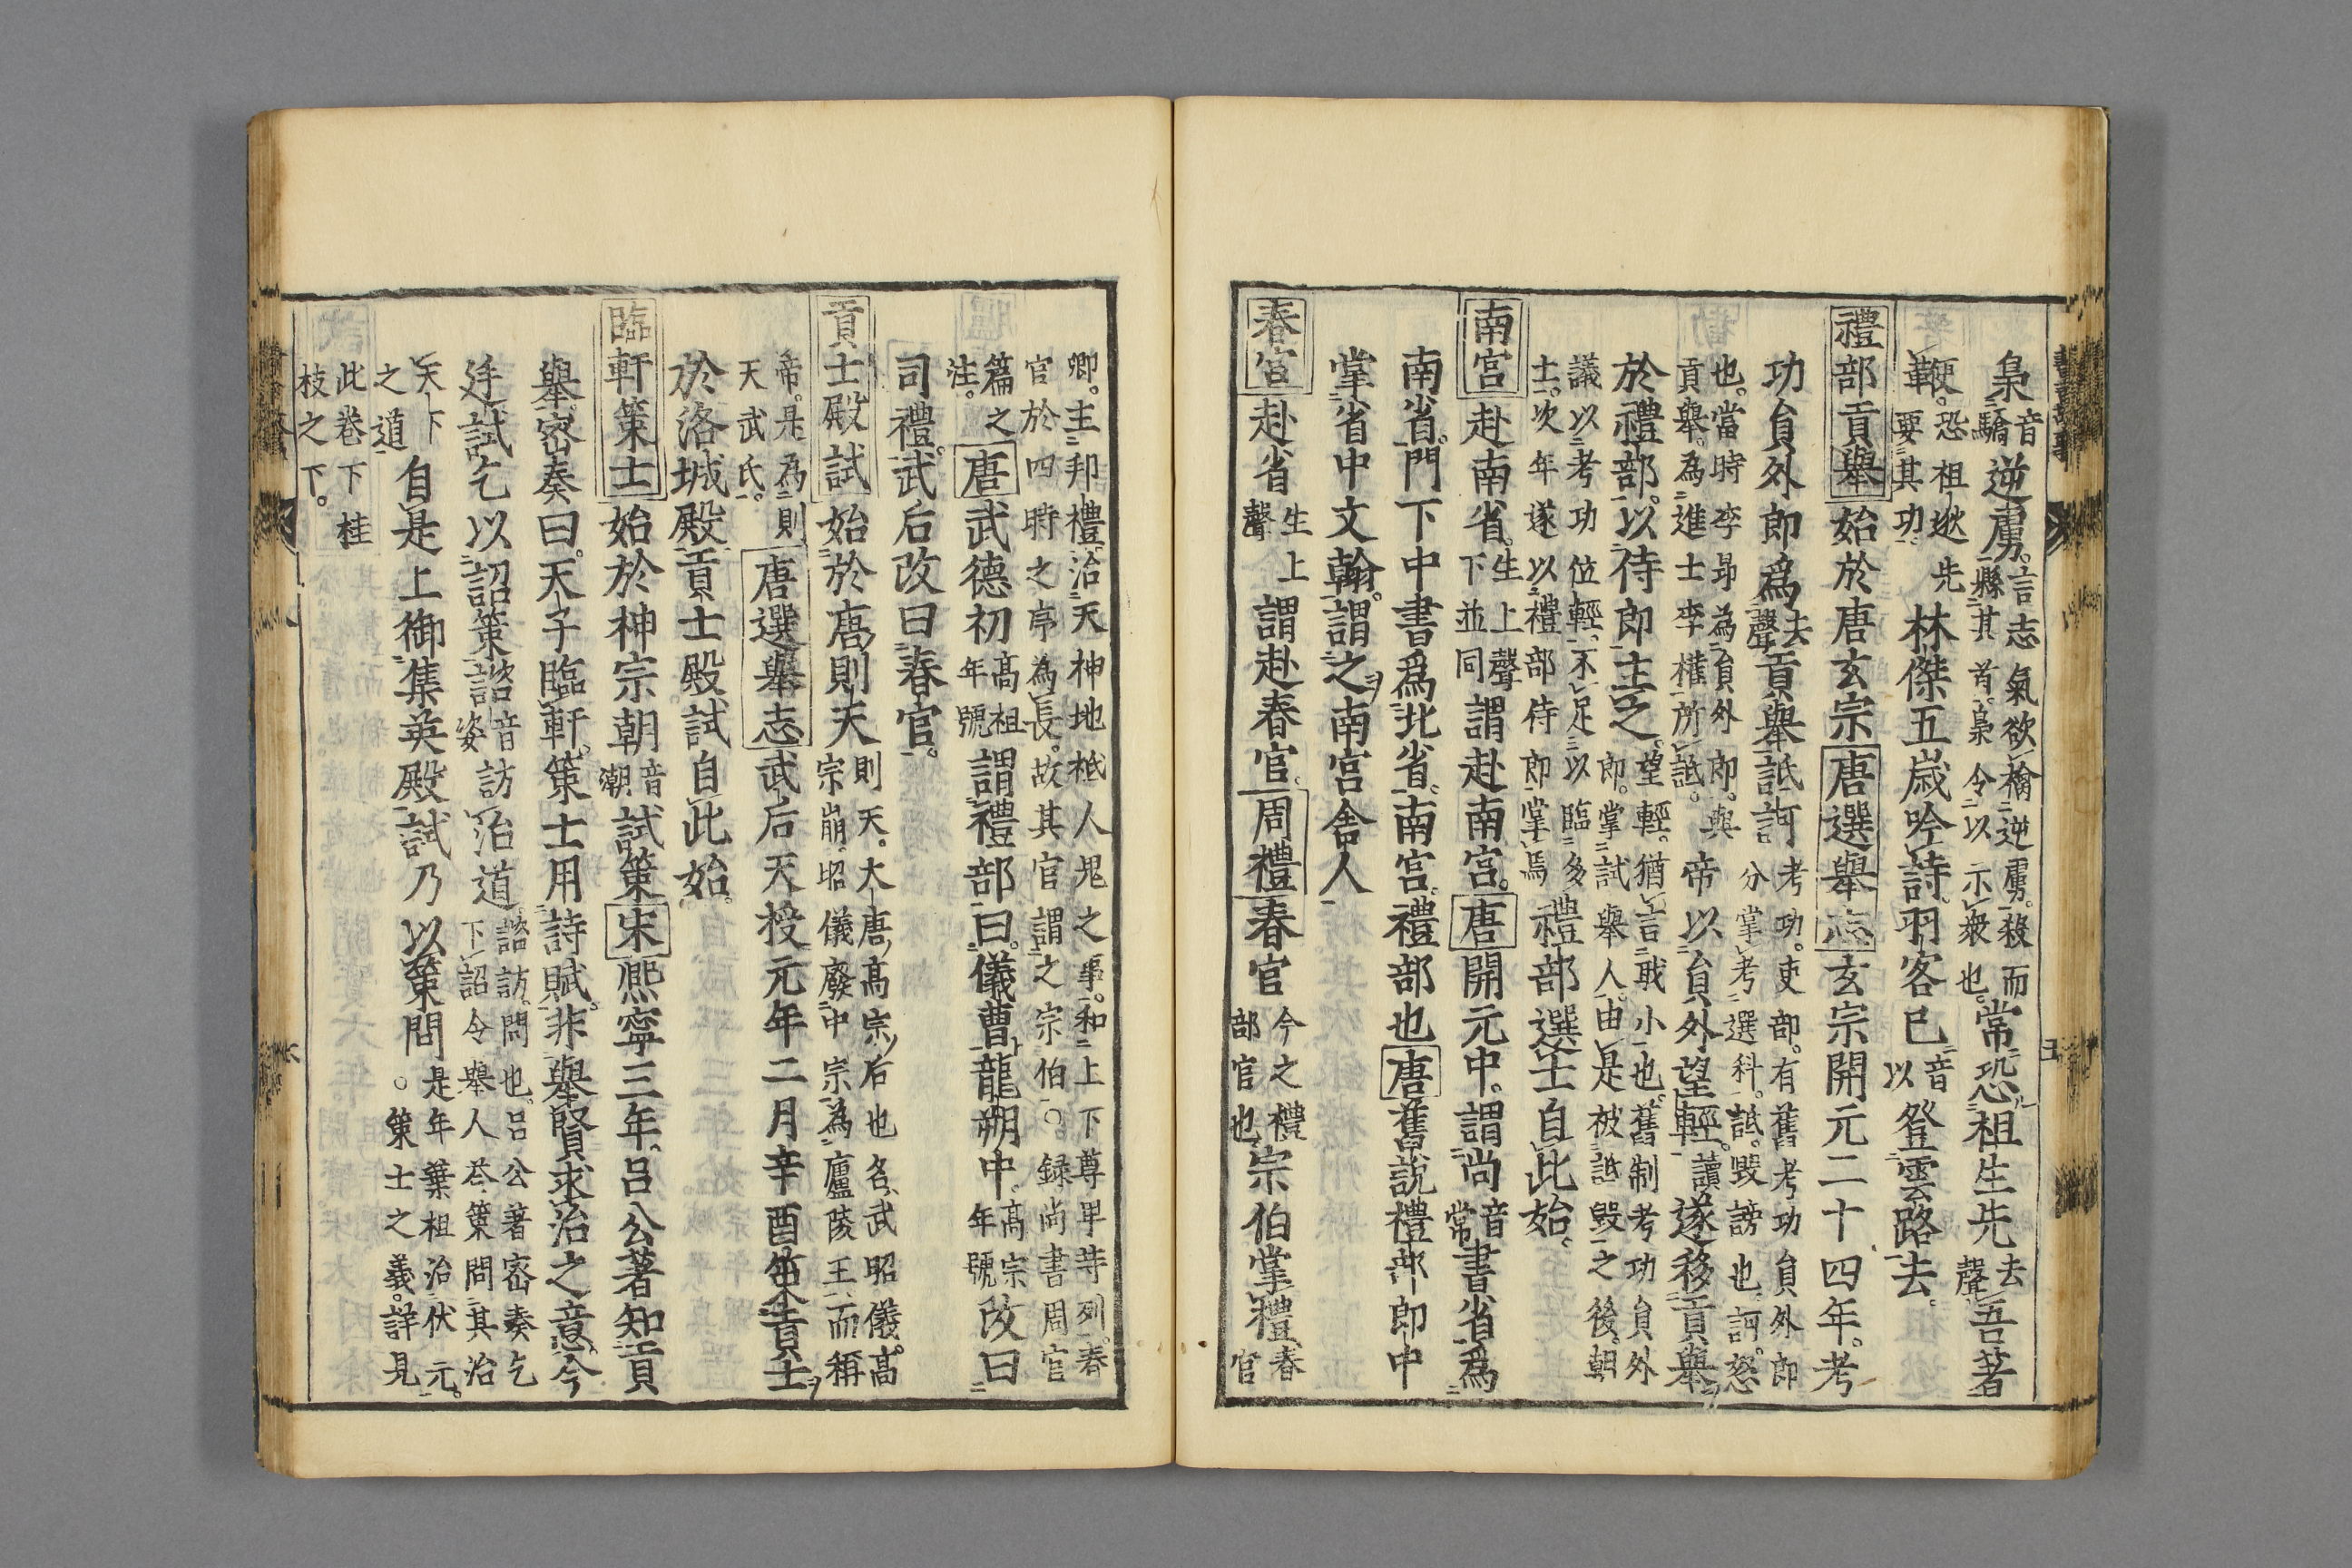 梟音驕逆虜言志氣欲梟逆虜殺而縣其首梟令以示衆也常恐祖生先去聲吾著
鞭恐祖逖先要其功林傑五歲吟詩羽客已音以登雲路去
禮部貢舉始於唐玄宗唐選舉志玄宗開元二十四年考
功貟外郎爲去聲貢舉詆訶考功吏部有舊考功貟外郎分掌考選科詆毀謗也訶怒
也當時李昻為貟外郎與貢舉為進士李權所詆帝以貟外望輕讀遂移貢舉
於禮部以侍郎主之望輕猶言職小也舊制考功貟外郎掌試舉人由是被詆毀之後朝
議以考功位輕不足以臨多士次年遂以禮部侍郎掌焉禮部選士自此始
南宮赴南省生上聲下並同謂赴南宮唐開元中謂尚音常書省爲
南省門下中書爲北省南宮禮部也唐舊說禮部郎中
掌省中文翰謂之南宮舍人
春官赴省生上聲謂赴春官周禮春官今之禮部官也宗伯掌禮春官
卿主邦禮治天神地祇人鬼之事和上下尊卑等列春官於四時之序為長故其官謂之宗伯○錄尚書周官
篇之注唐武德初高祖年號謂禮部曰儀曹龍朔中高宗年號改曰
司禮武后改曰春官
貢士殿試始於唐則天則天大唐高宗后也名武昭儀高宗崩昭儀廢中宗為廬陵王而稱
帝是為則天武氏唐選舉志武后天授元年二月辛酉策貢士
於洛城殿貢士殿試自此始
臨軒策士始於神宗朝音潮試策宋熈寧三年呂公著知貢
舉密奏曰天子臨軒策士用詩賦非舉賢求治之意今
廷試乞以詔策諮音姿訪治道諮訪問也呂公著密奏乞下詔令舉人荅策問其治
天下之道自是上御集英殿試乃以策問是年葉祖洽伏元○策士之義詳見
此卷下桂枝之下